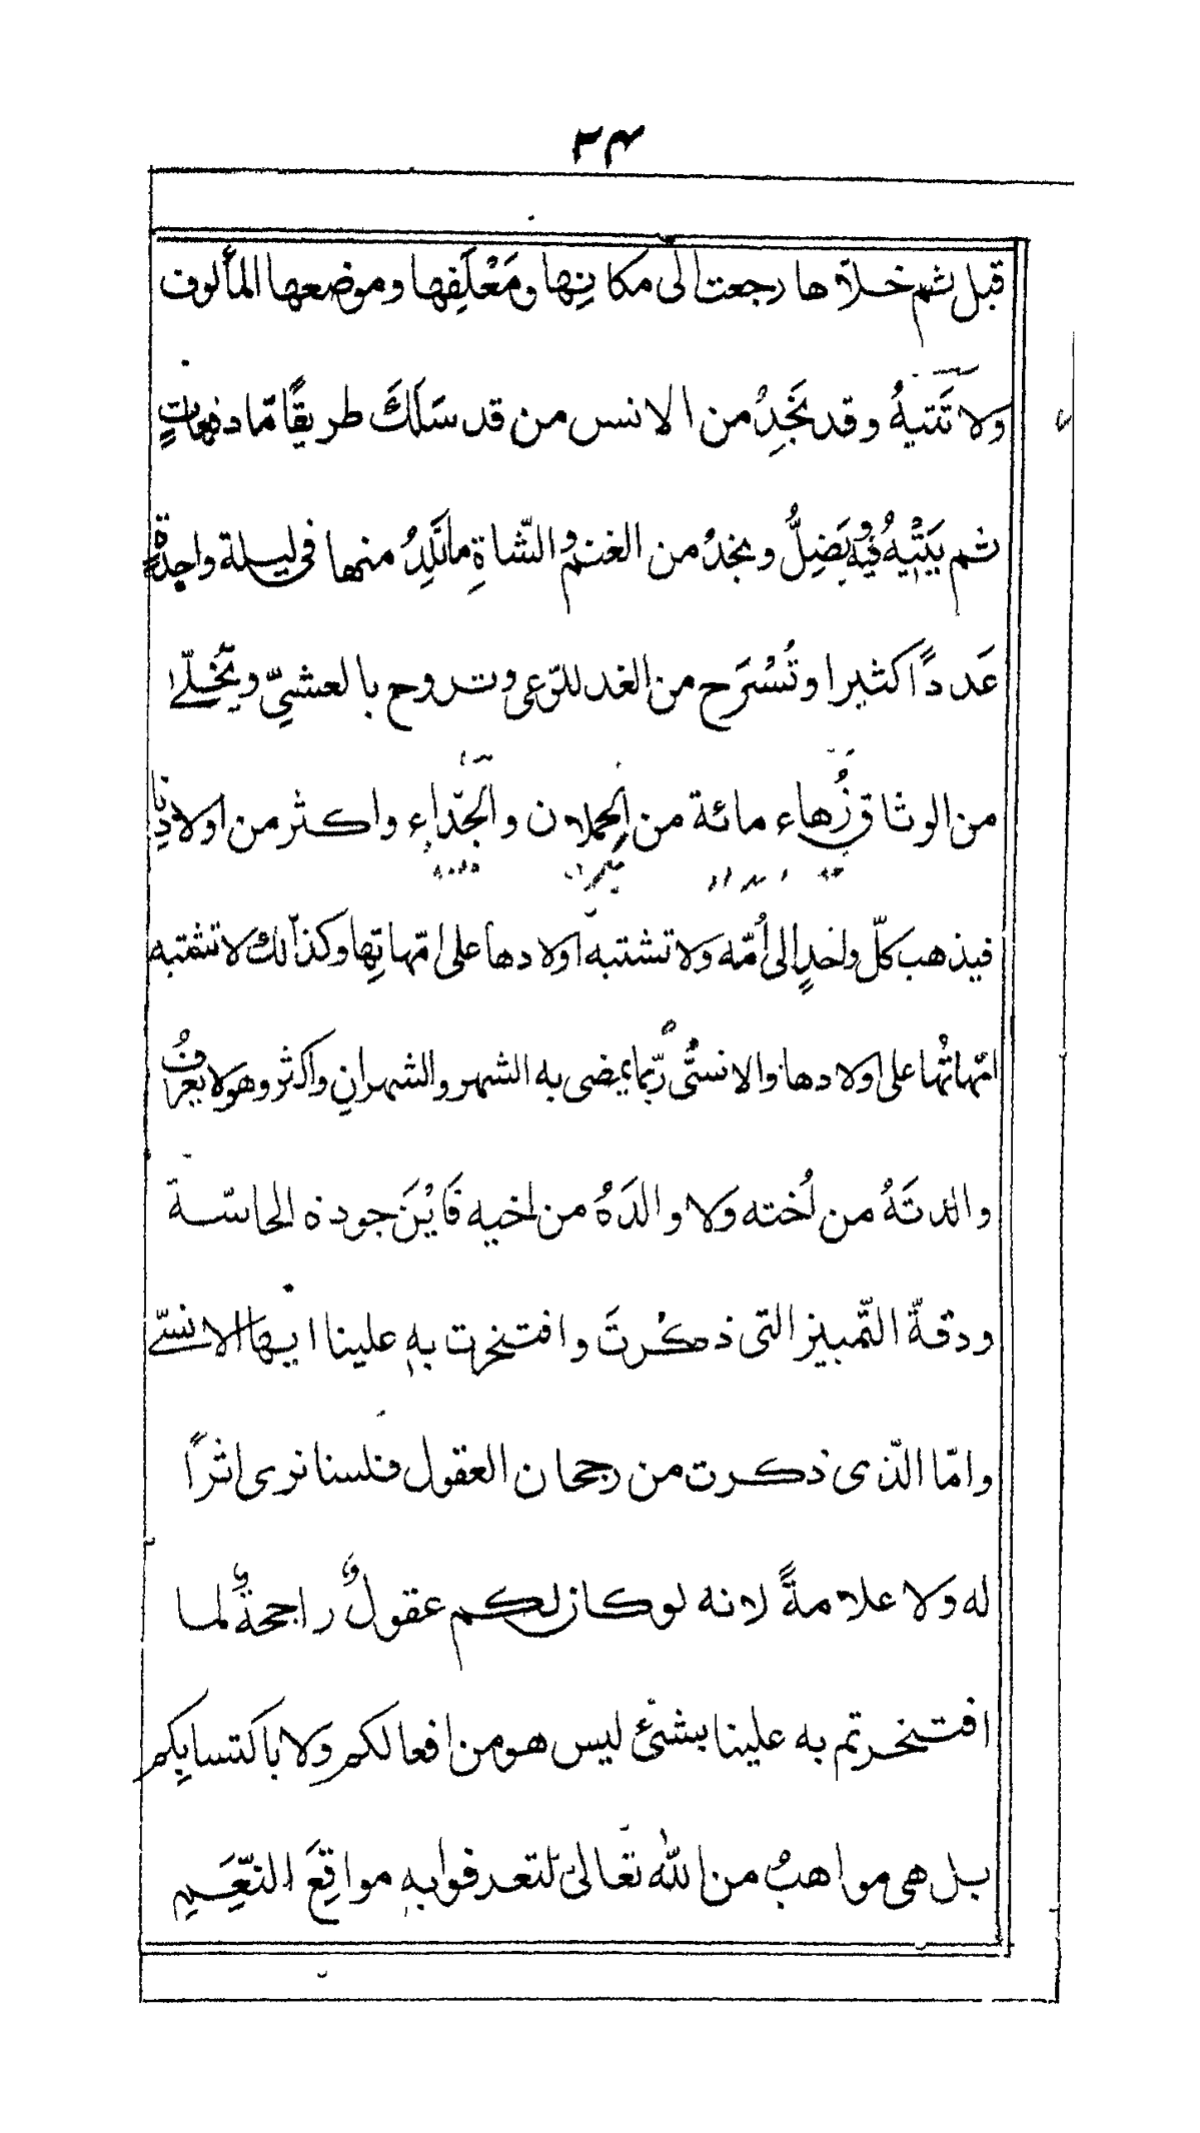 ۳۴
قبل ثم خلاّها رجعت الى مكانِها ومَعْلَفِها وموضعها المألوف
ولا تَتيهُ وقد نَجِدُ من الانس من قد سَلَكَ طريقًا مّا دفعاتٍ
ثم يَتِيهُ فيه ويَضِلُّ ونجدُ من الغنم والشّاةِ ما تَلِدُ منها فى ليلة واحِدَةٍ
عَدداً كثيرا وتُسْرَح من الغد للرّعى وتروح بالعشيِّ ويُخَلّے
من الوثاق زُهاء مائة من الحِملان والجِدّاء واكثر من اولادِها
فيذهب كلّ واحدٍ الى أُمّه ولا تشتبه اولادها على امّهاتِها وكذالك لا تشتبه
امّهاتُها على اولادها والانسىُّ ربّما يمضى به الشهر والشهرانِ واكثر وهو لا يعرف
والدتَهُ من اُخته ولا والدَهُ من اخيه فَاَيْنَ جودة الحاسّة
ودقّة التّمييز التى ذكرتَ وافتخرت بهِ علينا ايها الانسىّے
وامّا الّذى ذكرت من رجحان العقول فلسنا نرى اثراً
له ولا علامةً لانه لوكان لكم عقولٌ راجحةٌ لما
افتخرتم به علينا بشئ ليس هو من افعالكم ولا باكتسابِكم
بل هى مواهبُ من الله تَعالىٰ لتعرفوا بهِ مواقِعَ النِّعَمِ